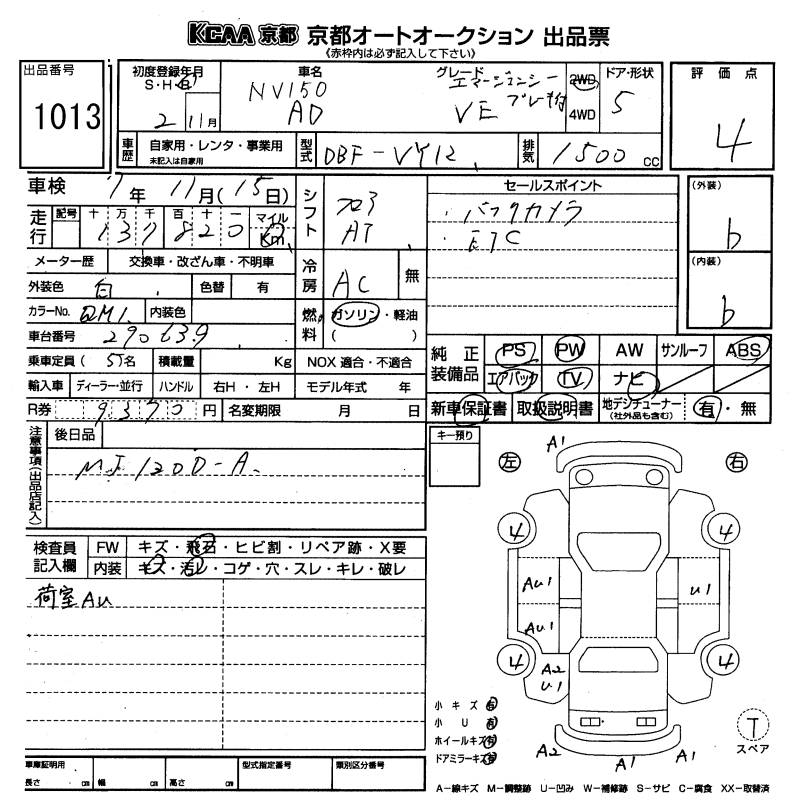 KCAA 京都 京都オートオークション 出品票
《赤枠内は必ず記入して下さい》
出品番号
1013
初度登録年月
S・H・R
2 11月
車名
NV150
AD
グレード
エマージェンシー
ブレーキ付
VE
2WD
4WD
ドア・形状
5
評価点
4
車歴
自家用・レンタ・事業用
未記入は自家用
型式
DBF-VY12
排気
1500 cc
車検 7年 11月(15日)
走行
記号 十 万 千 百 十 一 マイル
137820 Km
シフト
フロア
AT
メーター歴 交換車・改ざん車・不明車
外装色 白 色替 有
冷房
AC 無
カラーNo. QM1 内装色
燃料
ガソリン・軽油
( )
車台番号 290639
乗車定員 (5)名 積載量 Kg NOX 適合・不適合
輸入車 ディーラー・並行 ハンドル 右H・左H モデル年式 年
R券 9370 円 名変期限 月 日
セールスポイント
・バックカメラ
・ETC
(外装)
b
(内装)
b
純正装備品
PS PW AW サンルーフ ABS
エアバック TV ナビ
新車保証書 取扱説明書 地デジチューナー 有・無
(社外品も含む)
注意事項(出品店記入)
後日品
MJ120D-A
キー預り
検査員記入欄
FW キズ・飛石・ヒビ割・リペア跡・X要
内装 キズ・汚レ・コゲ・穴・スレ・キレ・破レ
荷室AU
左
右
A1
4
4
AU1
U1
AU1
4
4
A2
U1
小キズ 有
小U 有
ホイールキズ 有
ドアミラーキズ 有
A2
A1
A1
T
スペア
車庫証明用
長さ cm 幅 cm 高さ cm
型式指定番号
類別区分番号
A-線キズ M-調整跡 U-凹み W-補修跡 S-サビ C-腐食 XX-取替済